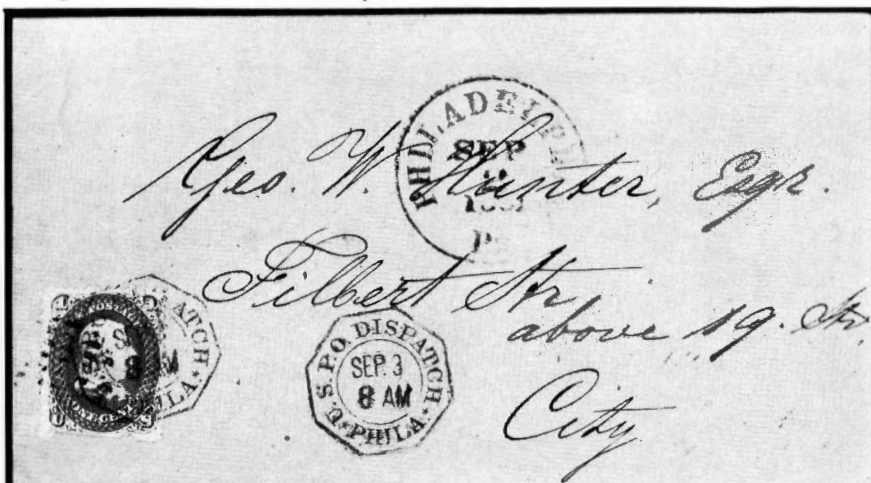 PHILADELPHIA
SEP
PA
Geo. W. Hunter, Esqr.
Filbert Str
above 19. Str.
City
U.S.P.O. DISPATCH
SEP. 3
8 AM
PHILA
ATCH
8 AM
ILA